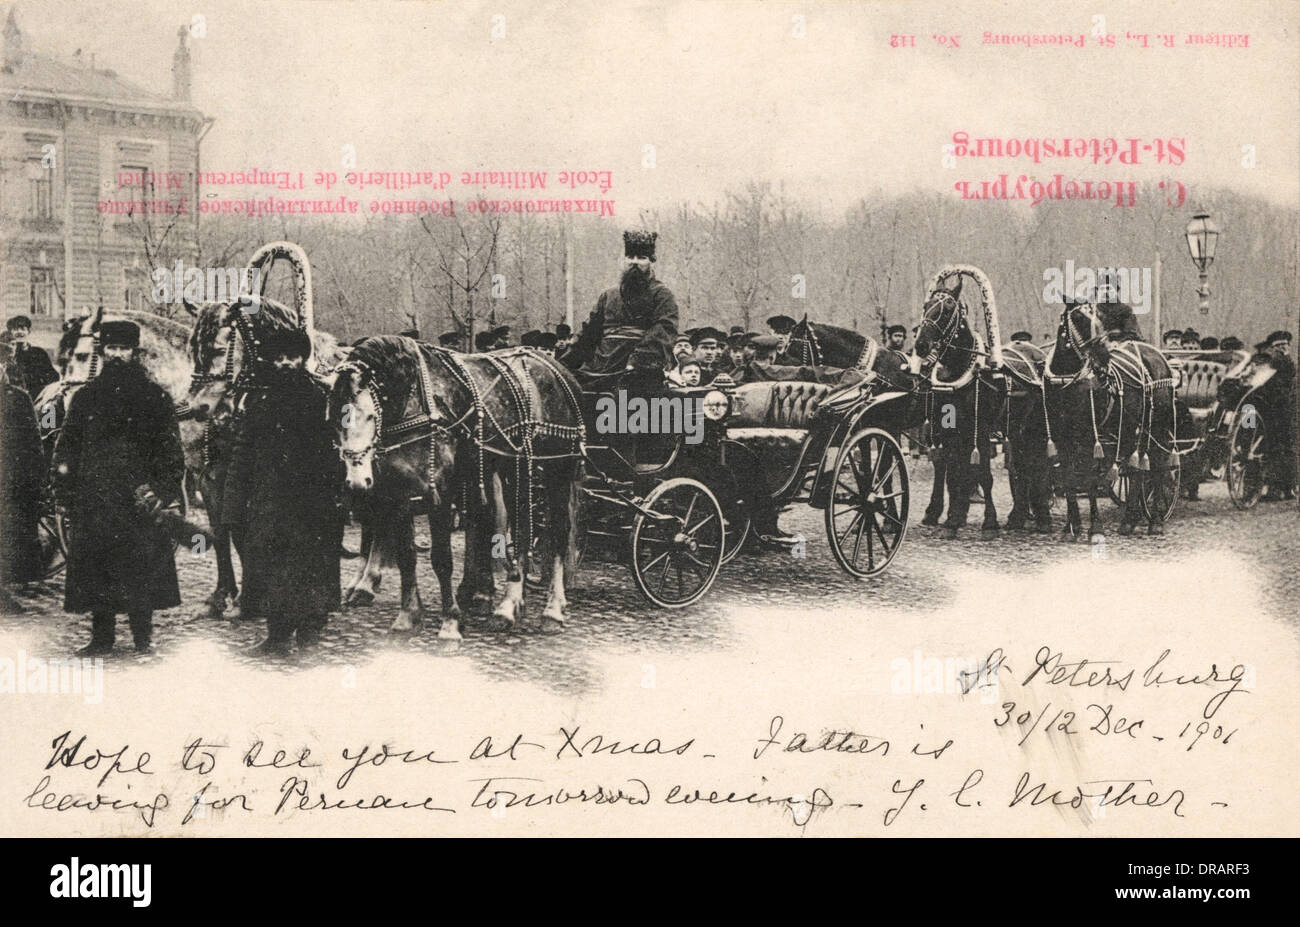 Editeur R. L., St. Petersbourg No. 112
С. Петербургъ
St-Pétersbourg
Михаиловское Военное артиллерійское училище
École Militaire d'artillerie de l'Empereur Michel
St Petersburg
30/12 Dec - 1901
Hope to see you at Xmas - Father is
leaving for Pernau tomorrow evening - Y. l. Mother -
alamy
Image ID: DRARF3
www.alamy.com